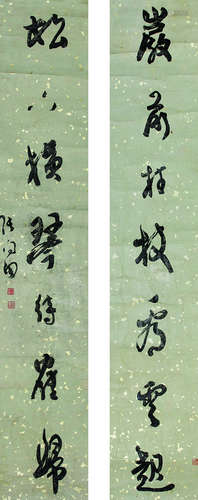 巖前拄杖看雲起
松下橫琴待鶴歸
張問陶